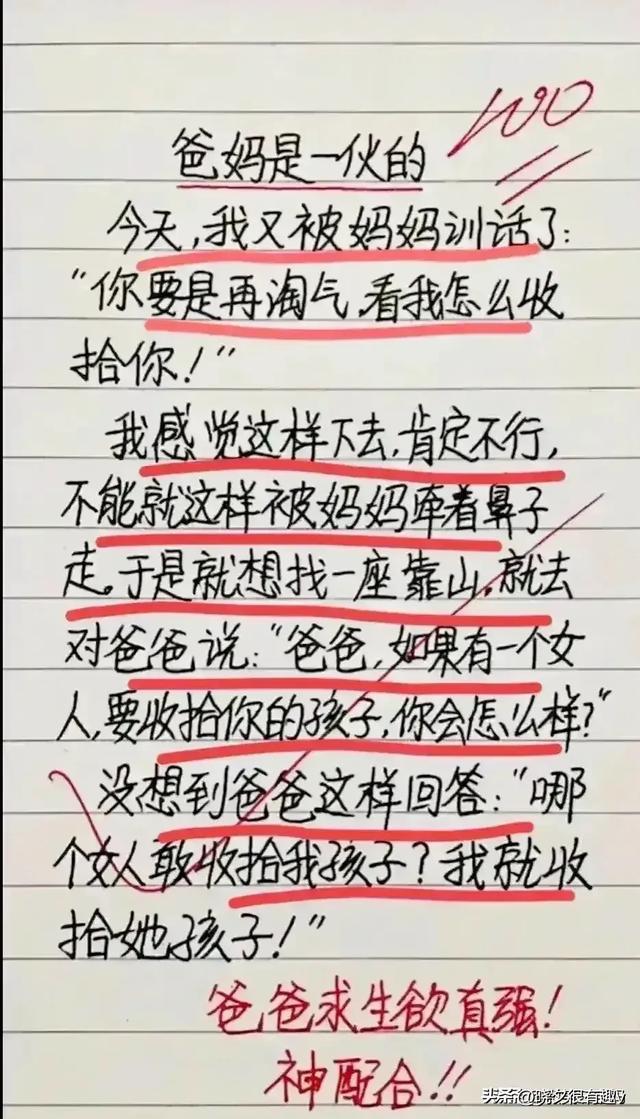 100
爸妈是一伙的
今天,我又被妈妈训话了:
“你要是再淘气,看我怎么收
拾你!”
我感觉这样下去,肯定不行,
不能就这样被妈妈牵着鼻子
走。于是就想找一座靠山。就去
对爸爸说:“爸爸,如果有一个女
人,要收拾你的孩子,你会怎么样?”
没想到爸爸这样回答:“哪
个女人敢收拾我孩子?我就收
拾她孩子!”
爸爸求生欲真强!
神配合!!
头条